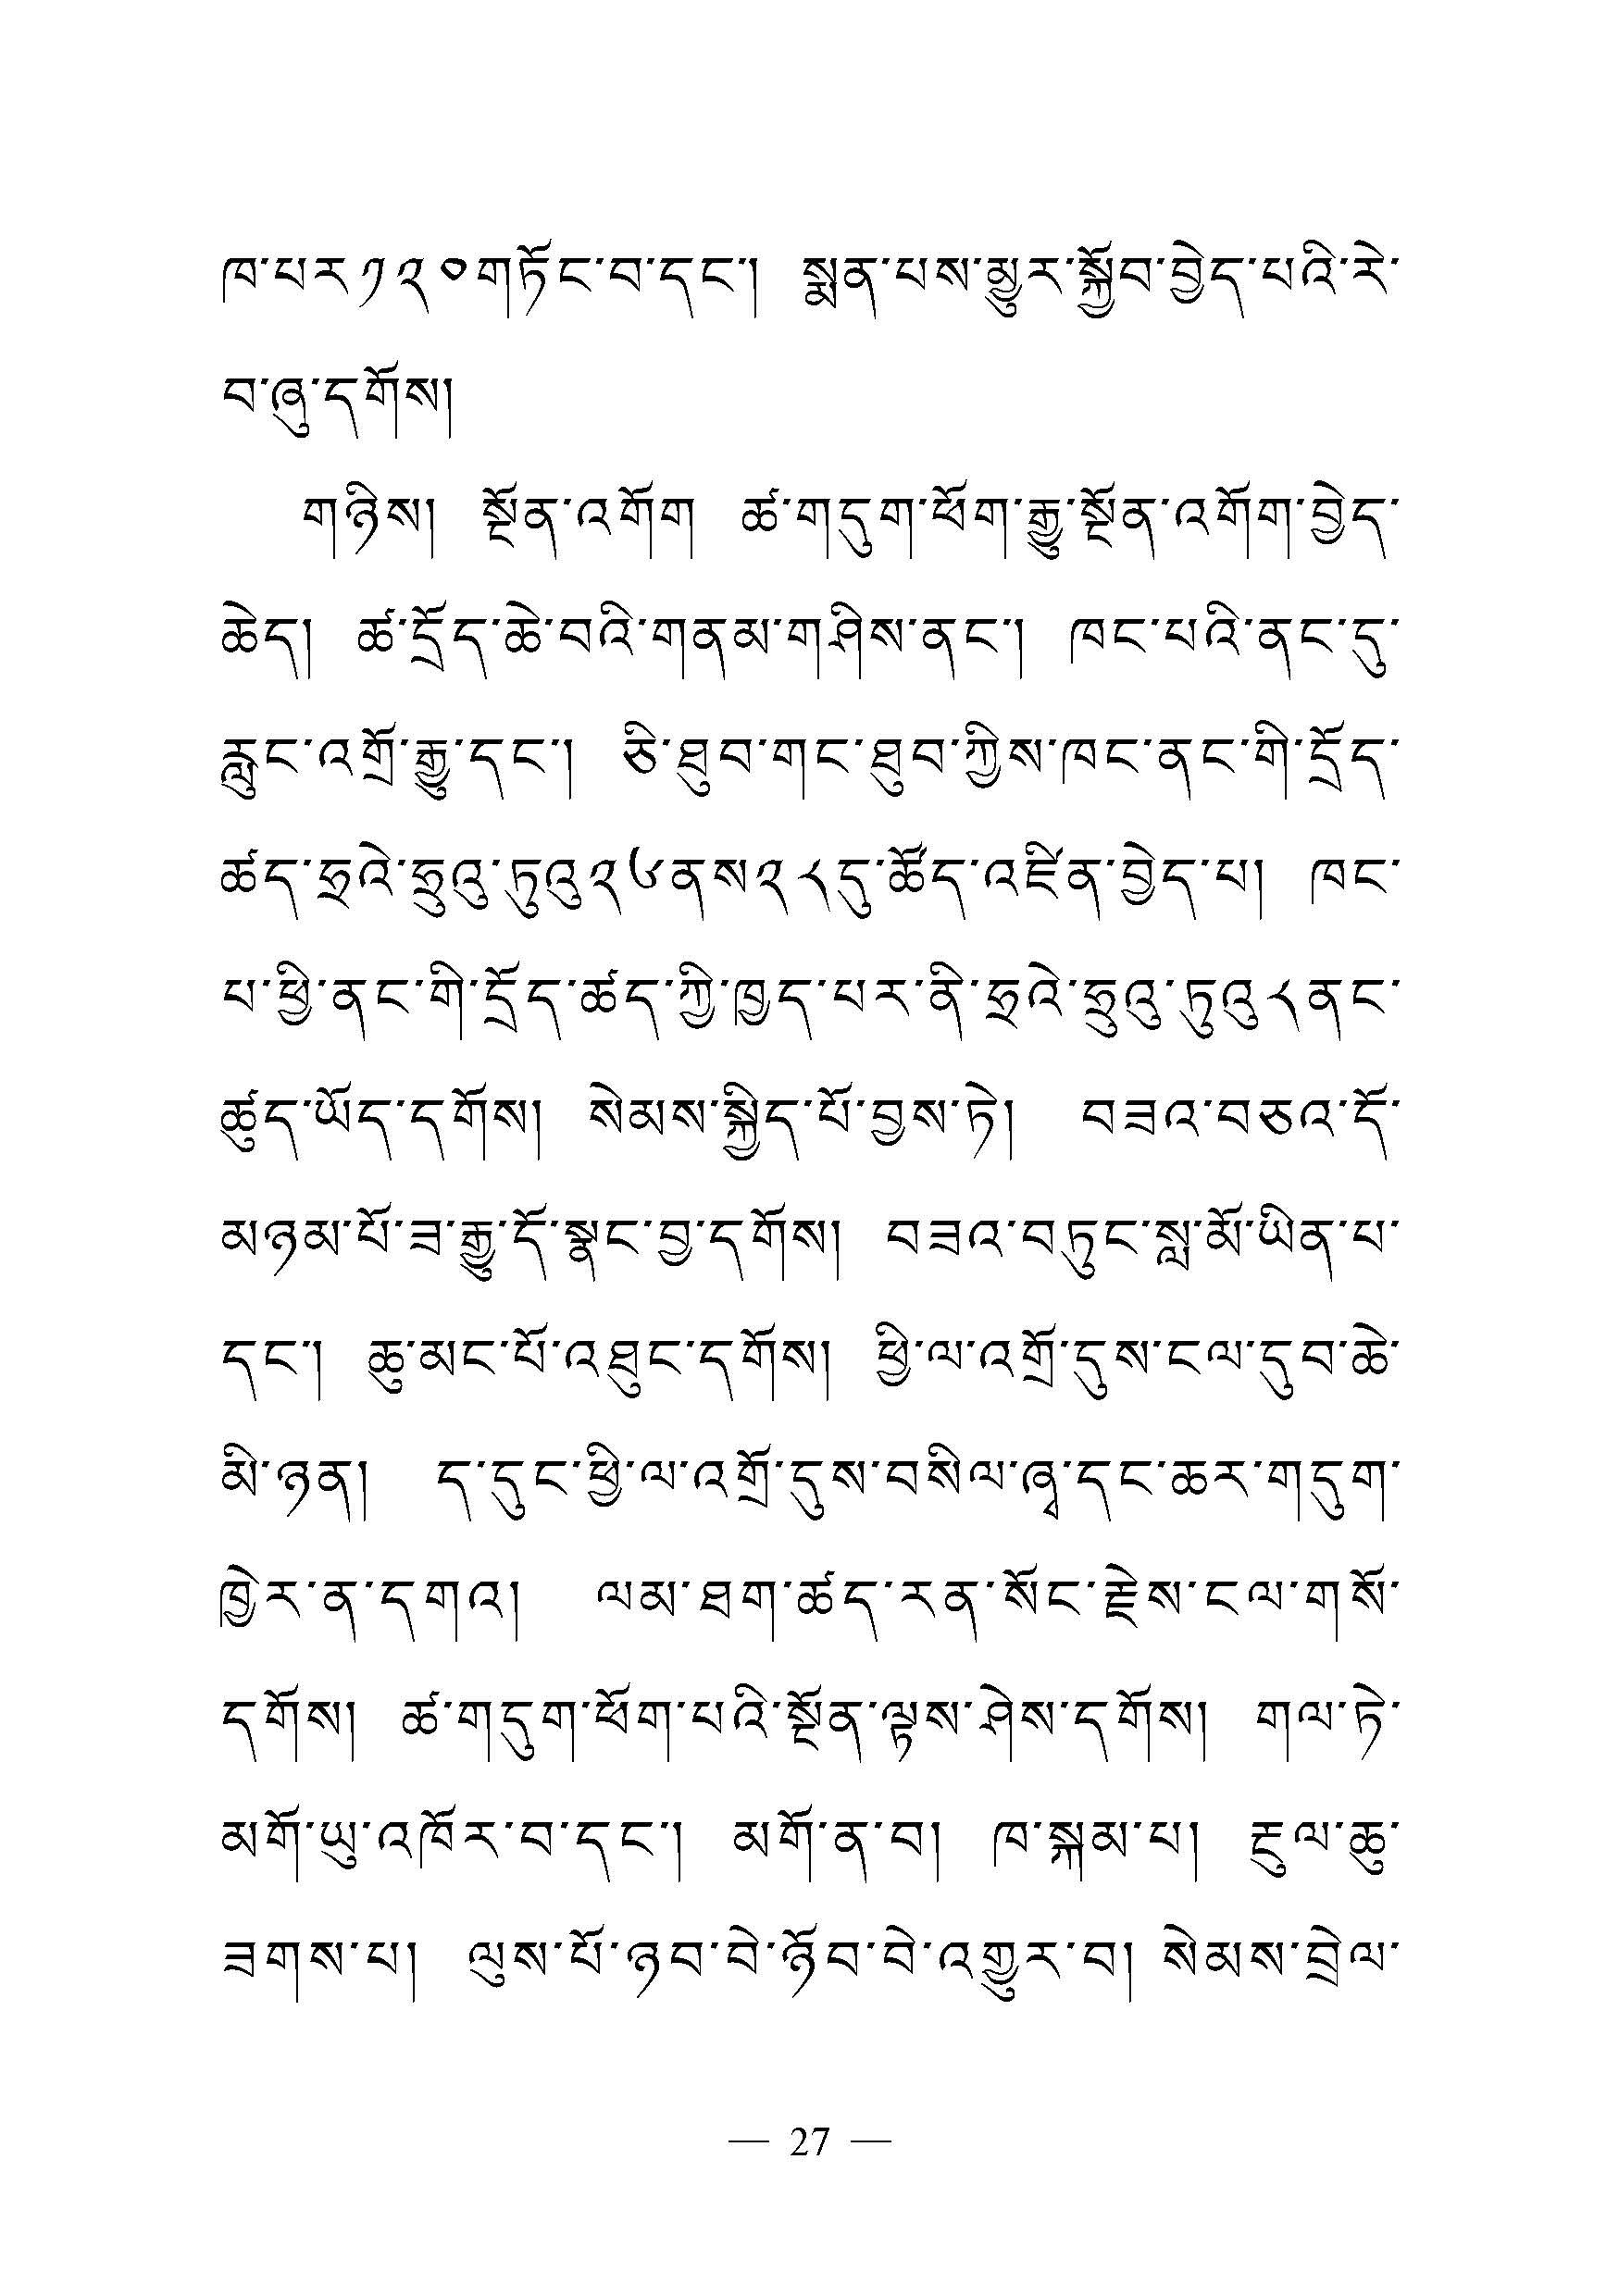 ཁ་པར༡༢༠གཏོང་བ་དང་། སྨན་པས་མྱུར་སྐྱོབ་བྱེད་པའི་རེ་
བ་ཞུ་དགོས།
གཉིས། སྔོན་འགོག ཚ་གདུག་ཕོག་རྒྱུ་སྔོན་འགོག་བྱེད་
ཆེད། ཚ་དྲོད་ཆེ་བའི་གནམ་གཤིས་ནང་། ཁང་པའི་ནང་དུ་
རླུང་འགྲོ་རྒྱུ་དང་། ཅི་ཐུབ་གང་ཐུབ་ཀྱིས་ཁང་ནང་གི་དྲོད་
ཚད་ཧྲའེ་ཧྲུའུ་ཏུའུ༢༦ནས༢༨དུ་ཚོད་འཛིན་བྱེད་པ། ཁང་
པ་ཕྱི་ནང་གི་དྲོད་ཚད་ཀྱི་ཁྱད་པར་ནི་ཧྲའེ་ཧྲུའུ་ཏུའུ༨ནང་
ཚུད་ཡོད་དགོས། སེམས་སྐྱིད་པོ་བྱས་ཏེ། བཟའ་བཅའ་དོ་
མཉམ་པོ་ཟ་རྒྱུ་དོ་སྣང་བྱ་དགོས། བཟའ་བཏུང་སླ་མོ་ཡིན་པ་
དང་། ཆུ་མང་པོ་འཐུང་དགོས། ཕྱི་ལ་འགྲོ་དུས་ངལ་དུབ་ཆེ་
མི་ཉན། ད་དུང་ཕྱི་ལ་འགྲོ་དུས་བསིལ་ཞྭ་དང་ཆར་གདུག་
ཁྱེར་ན་དགའ། ལམ་ཐག་ཚད་རན་སོང་རྗེས་ངལ་གསོ་
དགོས། ཚ་གདུག་ཕོག་པའི་སྔོན་ལྟས་ཤེས་དགོས། གལ་ཏེ་
མགོ་ཡུ་འཁོར་བ་དང་། མགོ་ན་བ། ཁ་སྐམ་པ། རྔུལ་ཆུ་
ཟགས་པ། ལུས་པོ་ཉབ་བེ་ཉོབ་བེ་འགྱུར་བ། སེམས་བྲེལ་
— 27 —